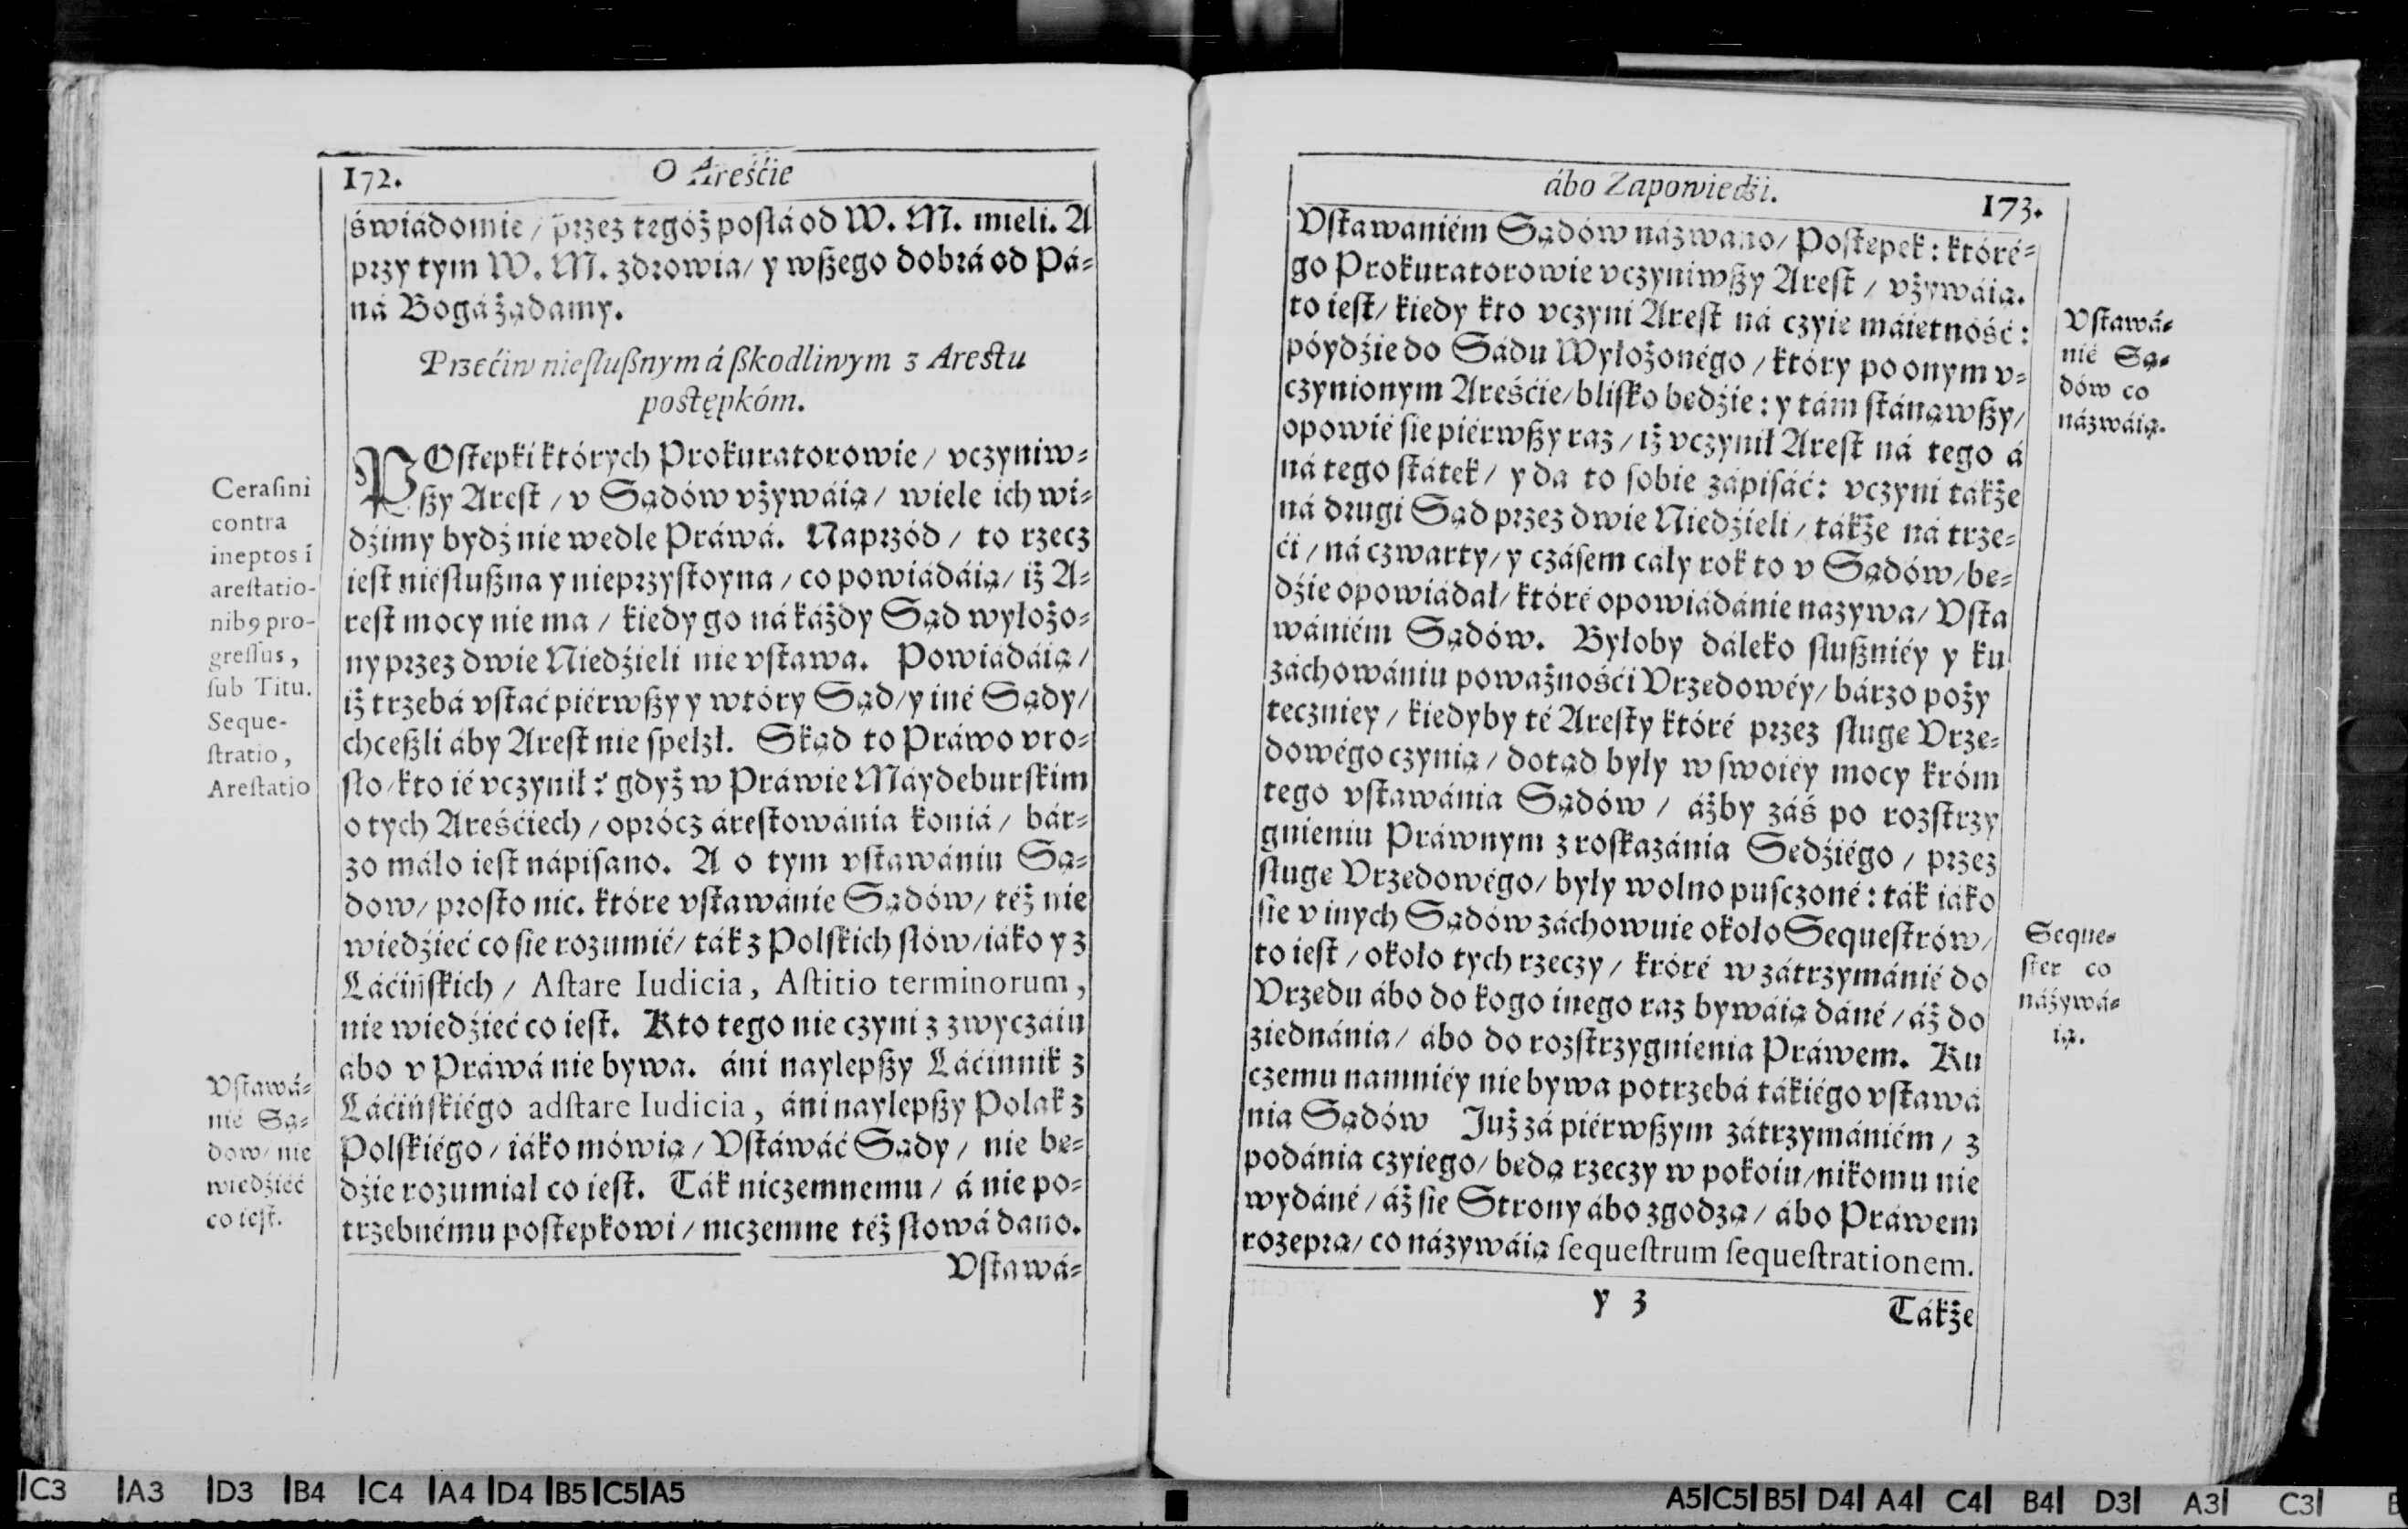 172. O Areśćie
świádomie / przez tegóż posłá od W. M. mieli. A
przy tym W. M. zdrowia / y wßego dobrá od Pá⸗
ná Bogá żądamy.
Przećiw niesłußnym á ßkodliwym z Arestu
postępkóm.
POstepki których Prokuratorowie / vczyniw⸗
ßy Arest / v Sądów vżywáią / wiele ich wi⸗
dźimy bydź nie wedle Práwá. Naprzód / to rzecz
iest niesłußna y nieprzystoyna / co powiádáią / iż A⸗
rest mocy nie ma / kiedy go ná káżdy Sąd wyłożo⸗
ny przez dwie Niedźieli nie vstawa. Powiádáią /
iż trzebá vstać piérwßy y wtóry Sąd / y iné Sądy /
chceßli áby Arest nie spełzł. Skąd to Práwo vro⸗
sło / kto ié vczynił? gdyż w Práwie Máydeburskim
o tych Areśćiech / oprócz árestowánia koniá / bár⸗
zo máło iest nápisano. A o tym vstawániu Są⸗
dow / prosto nic. które vstawánie Sądów / téż nie
wiedźieć co sie rozumié / ták z Polskich słów / iáko y z
Łáćińskich / Aſtare Iudicia, Aſtitio terminorum,
nie wiedźieć co iest. Kto tego nie czyni z zwyczáiu
abo v Práwá nie bywa. áni naylepßy Łáćinnik z
Łáćińskiégo adſtare Iudicia, áni naylepßy Polak z
Polskiégo / iáko mówią / Vstáwáć Sądy / nie be⸗
dźie rozumiał co iest. Ták niczemnemu / á nie po⸗
trzebnému postepkowi / niczemne téż słowá dano.
Vstawá⸗
Ceraſini
contra
ineptos i
areſtatio-
nibꝰ pro-
greſſus,
ſub Titu.
Seque-
ſtratio,
Areſtatio
Vstawá⸗
nié Są⸗
dow / nie
wiedźiéć
co iest.
ábo Zapowiedźi. 173.
Vstawaniém Sądów názwano / Postepek: któré⸗
go Prokuratorowie vczyniwßy Arest / vżywáią.
to iest / kiedy kto vczyni Arest ná czyie máietność:
póydźie do Sádu Wyłożonégo / który po onym v⸗
czynionym Areśćie / blisko bedźie: y tám stánąwßy /
opowié sie piérwßy raz / iż vczynił Arest ná tego á
ná tego státek / y da to sobie zápisáć: vczyni tákże
ná drugi Sąd przez dwie Niedźieli / tákże ná trze⸗
ći / ná czwarty / y czásem cały rok to v Sądów / be⸗
dźie opowiádał / któré opowiádánie nazywa / Vsta
wániém Sądów. Byłoby dáleko słußniéy y ku
záchowániu poważnośći Vrzedowéy / bárzo poży
teczniey / kiedyby té Aresty któré przez sługe Vrze⸗
dowégo czynią / dotąd były w swoiéy mocy króm
tego vstawánia Sądów / áżby záś po rozstrzy
gnieniu Práwnym z roskazánia Sedźiégo / przez
sługe Vrzedowégo / były wolno pusczoné: ták iáko
sie v inych Sądów záchowuie około Sequestrów /
to iest / około tych rzeczy / króré w zátrzymánié do
Vrzedu ábo do kogo inego raz bywáią dáné / áż do
ziednánia / ábo do rozstrzygnienia Práwem. Ku
czemu namniéy nie bywa potrzebá tákiégo vstawá
nia Sądów Już zá piérwßym zátrzymániém / z
podánia czyiego / bedą rzeczy w pokoiu / nikomu nie
wydáné / áż sie Strony ábo zgodzą / ábo Práwem
rozeprą / co názywáią ſequeſtrum ſequeſtrationem.
Y 3 Tákże
Vstawá⸗
nié Są⸗
dów co
názwáią.
Seque⸗
ster co
názywá⸗
ią.
C3 A3 D3 B4 C4 A4 D4 B5 C5 A5
A5 C5 B5 D4 A4 C4 B4 D3 A3 C3